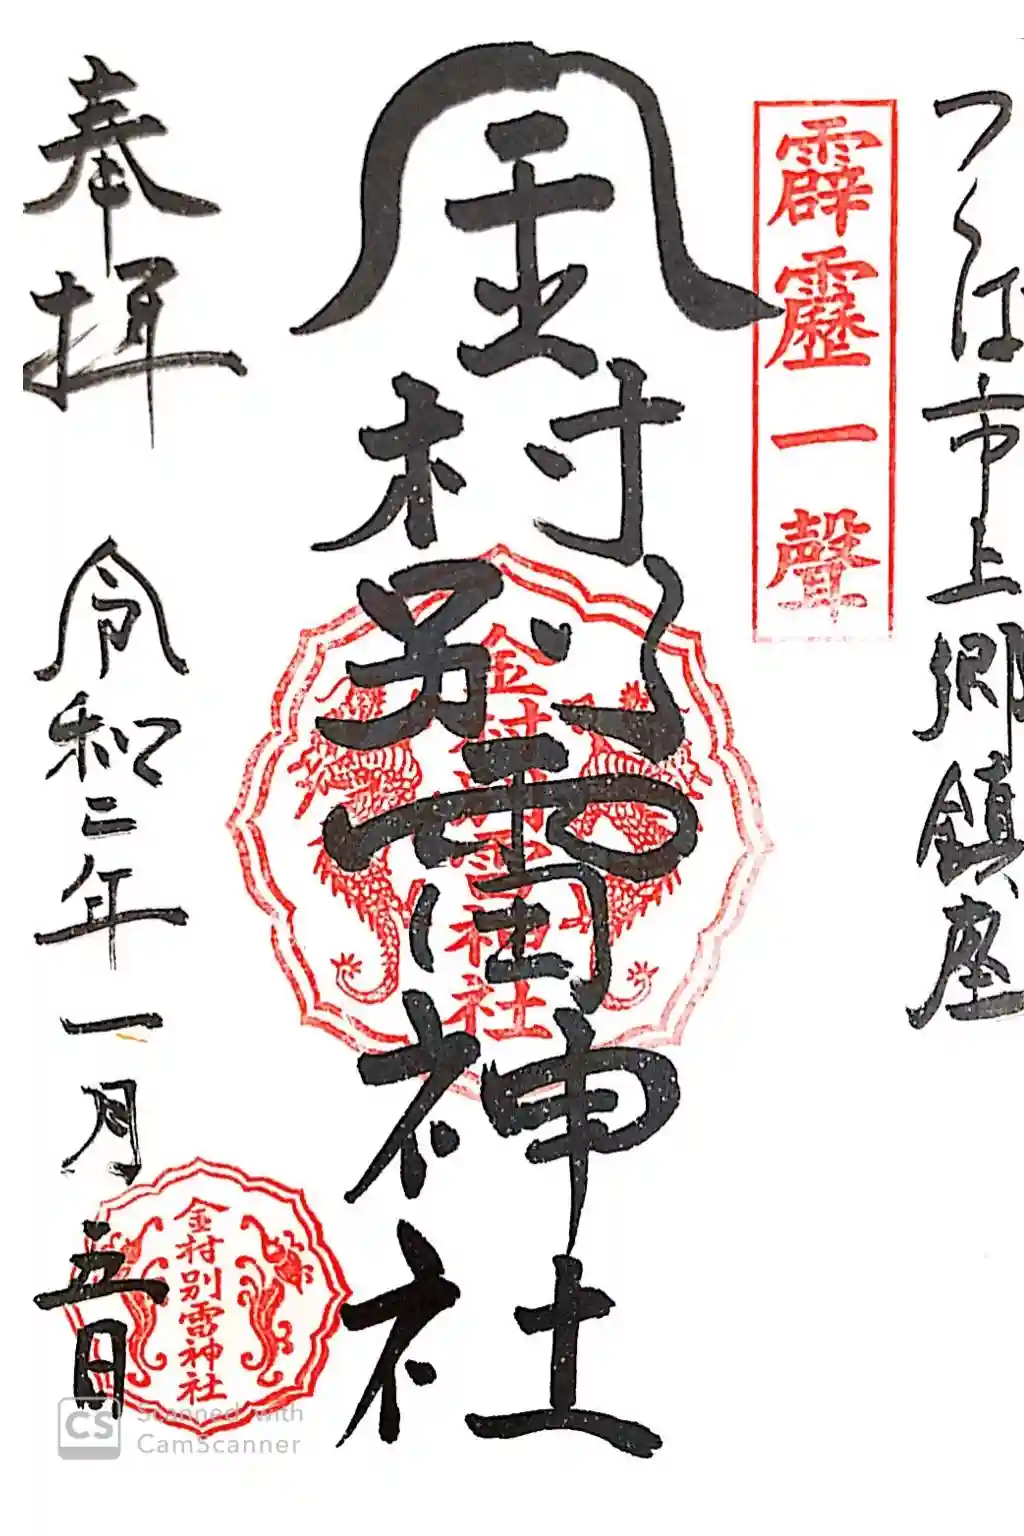 つくば市上郷鎮座
霹靂一聲
金村別雷神社
金村別雷神社
奉拝
令和二年一月五日
金村別雷神社
CS Scanned with
CamScanner